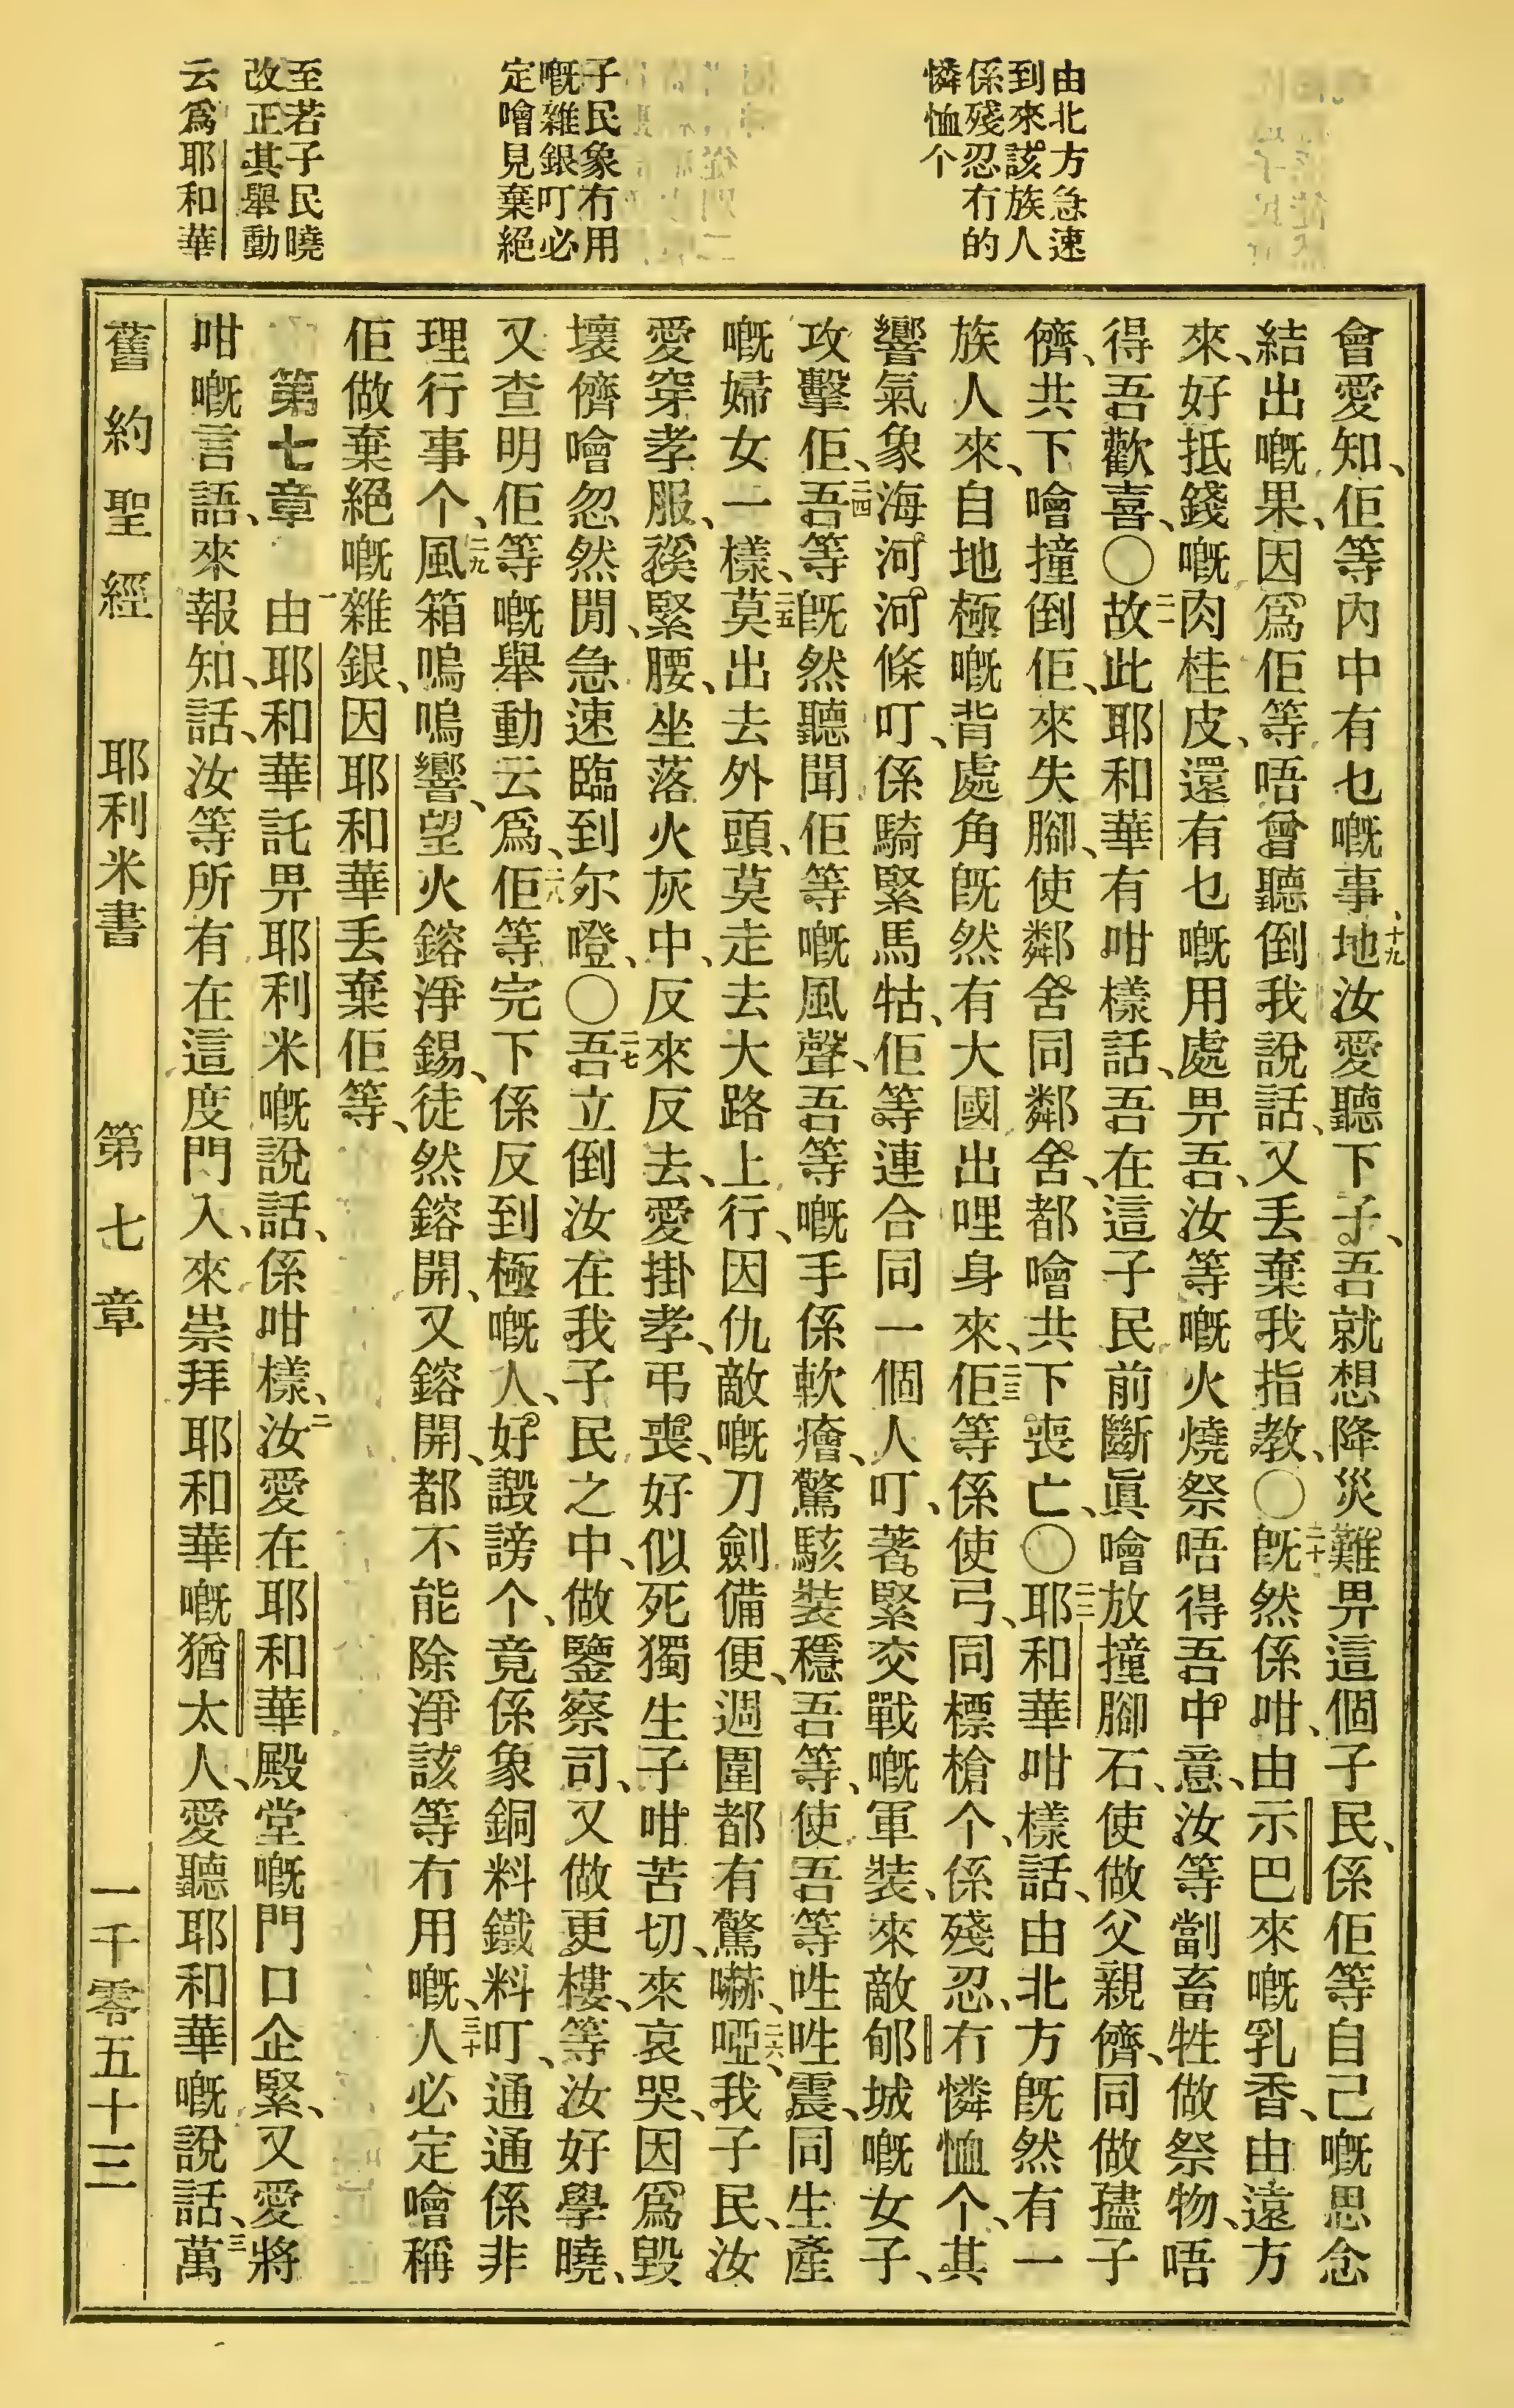 由北方急速
到來該族人
係殘忍冇的
憐恤个
子民象冇用
嘅雜銀叮必
定噲見棄絕
至若子民曉
改正其舉動
云爲耶和華
會愛知、佢等內中有乜嘅事、十九地汝愛聽下子、吾就想降災難畀這個子民、係佢等自己嘅思念
結出嘅果、因爲佢等唔曾聽倒我說話、又丟棄我指教、〇二十既然係咁、由示巴來嘅乳香、由遠方
來、好抵錢嘅肉桂皮、還有乜嘅用處畀吾、汝等嘅火燒祭唔得吾中意、汝等劏畜牲做祭物、唔
得吾歡喜、〇二一故此耶和華有咁樣話、吾在這子民前斷眞噲放撞腳石、使做父親儕、同做孻子
儕、共下噲撞倒佢、來失腳、使鄰舍同鄰舍、都噲共下喪亡、〇二二耶和華咁樣話、由北方既然有一
族人來、自地極嘅背處角既然有大國出哩身來、二三佢等係使弓、同標槍个、係殘忍、冇憐恤个、其
響氣象海河河條叮、係騎緊馬牯、佢等連合同一個人叮、著緊交戰嘅軍裝、來敵郇城嘅女子、
攻擊佢、二四吾等既然聽聞佢等嘅風聲、吾等嘅手係軟癐、驚駭裝穩吾等、使吾等呭呭震、同生產
嘅婦女一樣、二五莫出去外頭、莫走去大路上行、因仇敵嘅刀劍備便、週圍都有驚嚇、二六啞、我子民、汝
愛穿孝服、䋺緊腰、坐落火灰中、反來反去、愛掛孝、弔喪、好似死獨生子咁苦切、來哀哭、因爲毀
壞儕噲忽然間、急速臨到尔噔、〇二七吾立倒汝在我子民之中、做鑒察司、又做更樓、等汝好學曉、
又查明佢等嘅舉動云爲、二八佢等完下係反到極嘅人、好譭謗个、竟係象銅料鐵料叮、通通係非
理行事个、二九風箱嗚嗚響、望火鎔淨錫、徒然鎔開、又鎔開、都不能除淨該等冇用嘅、三十人必定噲稱
佢做棄絕嘅雜銀、因耶和華丟棄佢等、
第七章　一由耶和華託畀耶利米嘅說話、係咁樣、二汝愛在耶和華殿堂嘅門口企緊、又愛將
咁嘅言語、來報知、話、汝等所有在這度門入、來崇拜耶和華嘅猶太人、愛聽耶和華嘅說話、三萬
舊約聖經　耶利米書　第七章　一千零五十三